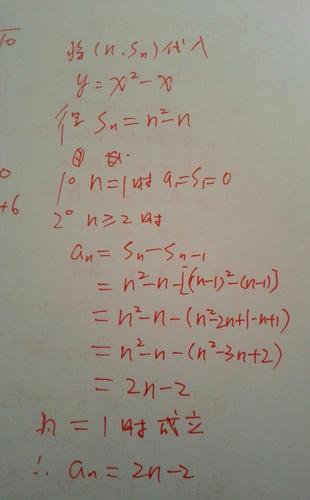 将(n,Sn)代入
y=x²-x
得 Sn=n²-n
1° n=1时 a₁=S₁=0
2° n≥2时
an=Sn-Sn-1
=n²-n-[(n-1)²-(n-1)]
=n²-n-(n²-2n+1-n+1)
=n²-n-(n²-3n+2)
=2n-2
n=1时成立
∴ an=2n-2